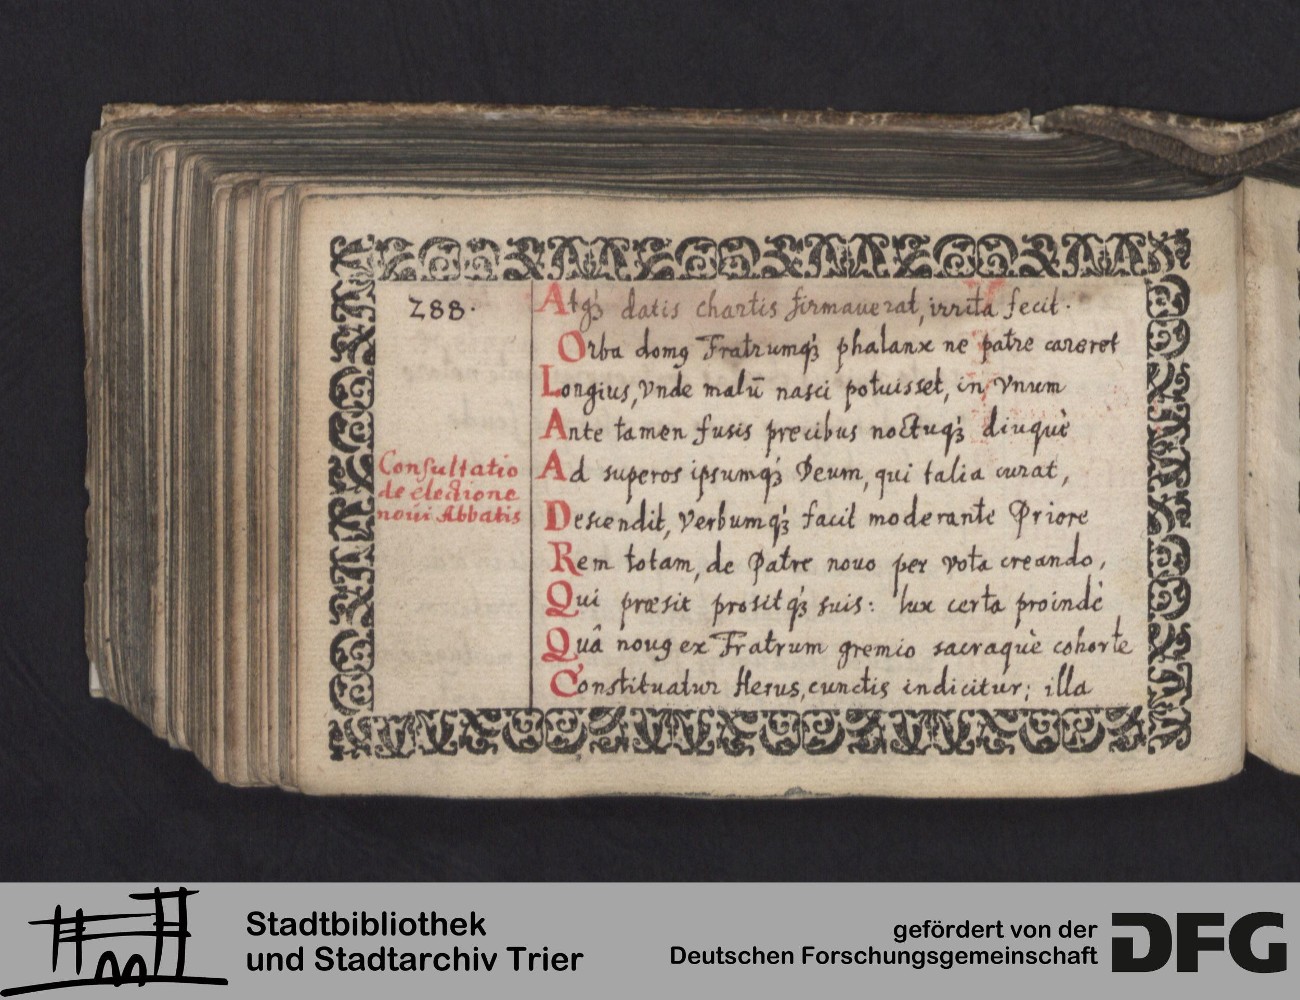 288.
Atq₃ datis chartis firmauerat, irrita fecit.
Orba domꝯ Fratrumq₃ phalanx ne patre careret
Longius, vnde malū nasci potuisset, in vnum
Ante tamen fusis precibus noctuq₃ diuquè
Consultatio
de electione
noui Abbatis
Ad superos ipsumq₃ Deum, qui talia curat,
Descendit, verbumq₃ facit moderante Priore
Rem totam, de Patre nouo per vota creando,
Qui præsit prositq₃ suis: lux certa proindè
Quâ nouꝯ ex Fratrum gremio sacraquè cohorte
Constituatur Herus, cunctis indicitur; illa
Stadtbibliothek
und Stadtarchiv Trier
gefördert von der
Deutschen Forschungsgemeinschaft
DFG